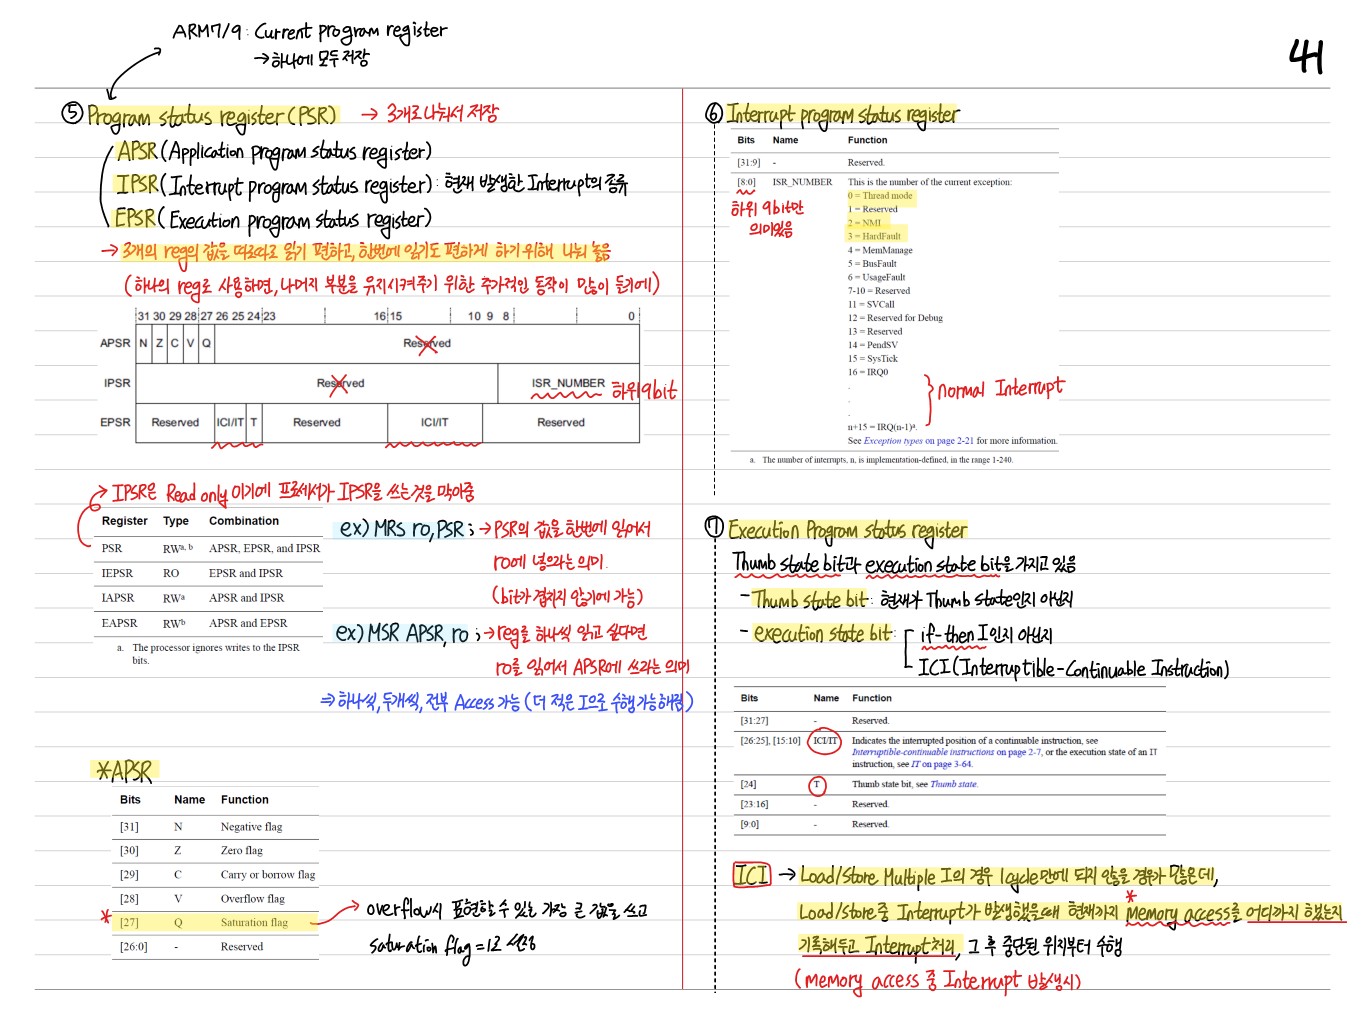 ARM7/9 : Current program register
→ 하나에 모두 저장
44
⑤ Program status register (PSR) → 3개로 나눠서 저장
APSR (Application program status register)
IPSR (Interrupt program status register) : 현재 발생한 Interrupt의 종류
EPSR (Execution program status register)
→ 3개의 reg의 값을 따로따로 읽기 편하고, 한번에 읽기도 편하게 하기 위해 나눠 놓음
(하나의 reg로 사용하면, 나머지 부분을 유지시켜주기 위한 추가적인 동작이 많이 들기에)
31 30 29 28 27 26 25 24 23 16 15 10 9 8 0
APSR N Z C V Q Reserved
IPSR Reserved ISR_NUMBER 하위 9bit
EPSR Reserved ICI/IT T Reserved ICI/IT Reserved
→ IPSR은 Read only 이기에 프로세서가 IPSR을 쓰는것을 막아줌
Register Type Combination
PSR RWa, b APSR, EPSR, and IPSR
IEPSR RO EPSR and IPSR
IAPSR RWa APSR and IPSR
EAPSR RWb APSR and EPSR
a. The processor ignores writes to the IPSR
bits.
ex) MRS r0, PSR ; → PSR의 값을 한번에 읽어서
r0에 넣으라는 의미.
(bit가 겹치지 않기에 가능)
ex) MSR APSR, r0 ; → reg를 하나씩 읽고 싶다면
r0를 읽어서 APSR에 쓰라는 의미
⇒ 하나씩, 두개씩, 전부 Access 가능 (더 적은 I으로 수행 가능해짐)
*APSR
Bits Name Function
[31] N Negative flag
[30] Z Zero flag
[29] C Carry or borrow flag
[28] V Overflow flag
* [27] Q Saturation flag
[26:0] - Reserved
→ overflow시 표현할 수 있는 가장 큰 값을 쓰고
saturation flag = 1로 설정
⑥ Interrupt program status register
Bits Name Function
[31:9] - Reserved.
[8:0] ISR_NUMBER This is the number of the current exception:
하위 9bit만
의미있음
0 = Thread mode
1 = Reserved
2 = NMI
3 = HardFault
4 = MemManage
5 = BusFault
6 = UsageFault
7-10 = Reserved
11 = SVCall
12 = Reserved for Debug
13 = Reserved
14 = PendSV
15 = SysTick
16 = IRQ0
.
.
.
normal Interrupt
n+15 = IRQ(n-1)a.
See Exception types on page 2-21 for more information.
a. The number of interrupts, n, is implementation-defined, in the range 1-240.
⑦ Execution Program status register
Thumb state bit과 execution state bit을 가지고 있음
- Thumb state bit : 현재가 Thumb state인지 아닌지
- execution state bit : if-then I인지 아닌지
ICI (Interruptible-Continuable Instruction)
Bits Name Function
[31:27] - Reserved.
[26:25], [15:10] ICI/IT Indicates the interrupted position of a continuable instruction, see
Interruptible-continuable instructions on page 2-7, or the execution state of an IT
instruction, see IT on page 3-64.
[24] T Thumb state bit, see Thumb state.
[23:16] - Reserved.
[9:0] - Reserved.
ICI → Load/Store Multiple I의 경우 1cycle만에 되지 않을 경우가 많은데,
Load/store 중 Interrupt가 발생했을때 현재까지 *Memory access를 어디까지 하였는지
기록해두고 Interrupt처리, 그 후 중단된 위치부터 수행
(memory access 중 Interrupt 발생시)